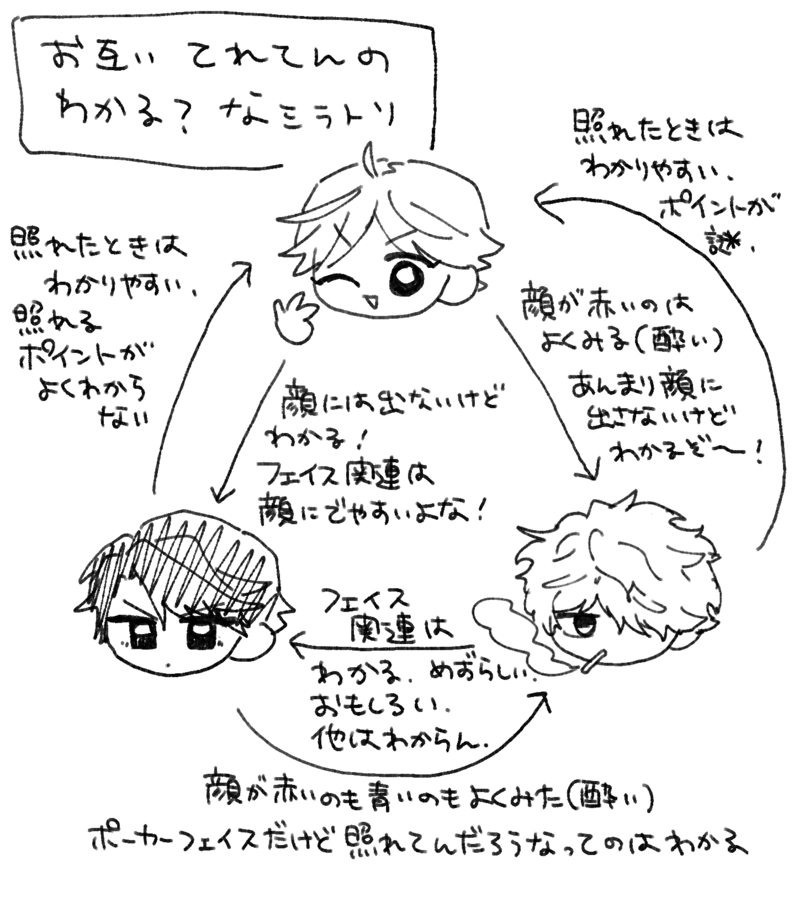 お互い てれてんの
わかる？ なミラトリ
照れたときは
わかりやすい、
ポイントが
謎*.
照れたときは
わかりやすい、
照れる
ポイントが
よくわから
ない
顔が赤いのは
よくみる(酔い)
あんまり顔に
出さないけど
わかるぞ〜!
顔には出ないけど
わかる!
フェイス関連は
顔にでやすいよな!
フェイス
関連は
わかる、めずらしい.
おもしろい.
他はわからん.
顔が赤いのも青いのもよくみた(酔い)
ポーカーフェイスだけど照れてんだろうなってのはわかる